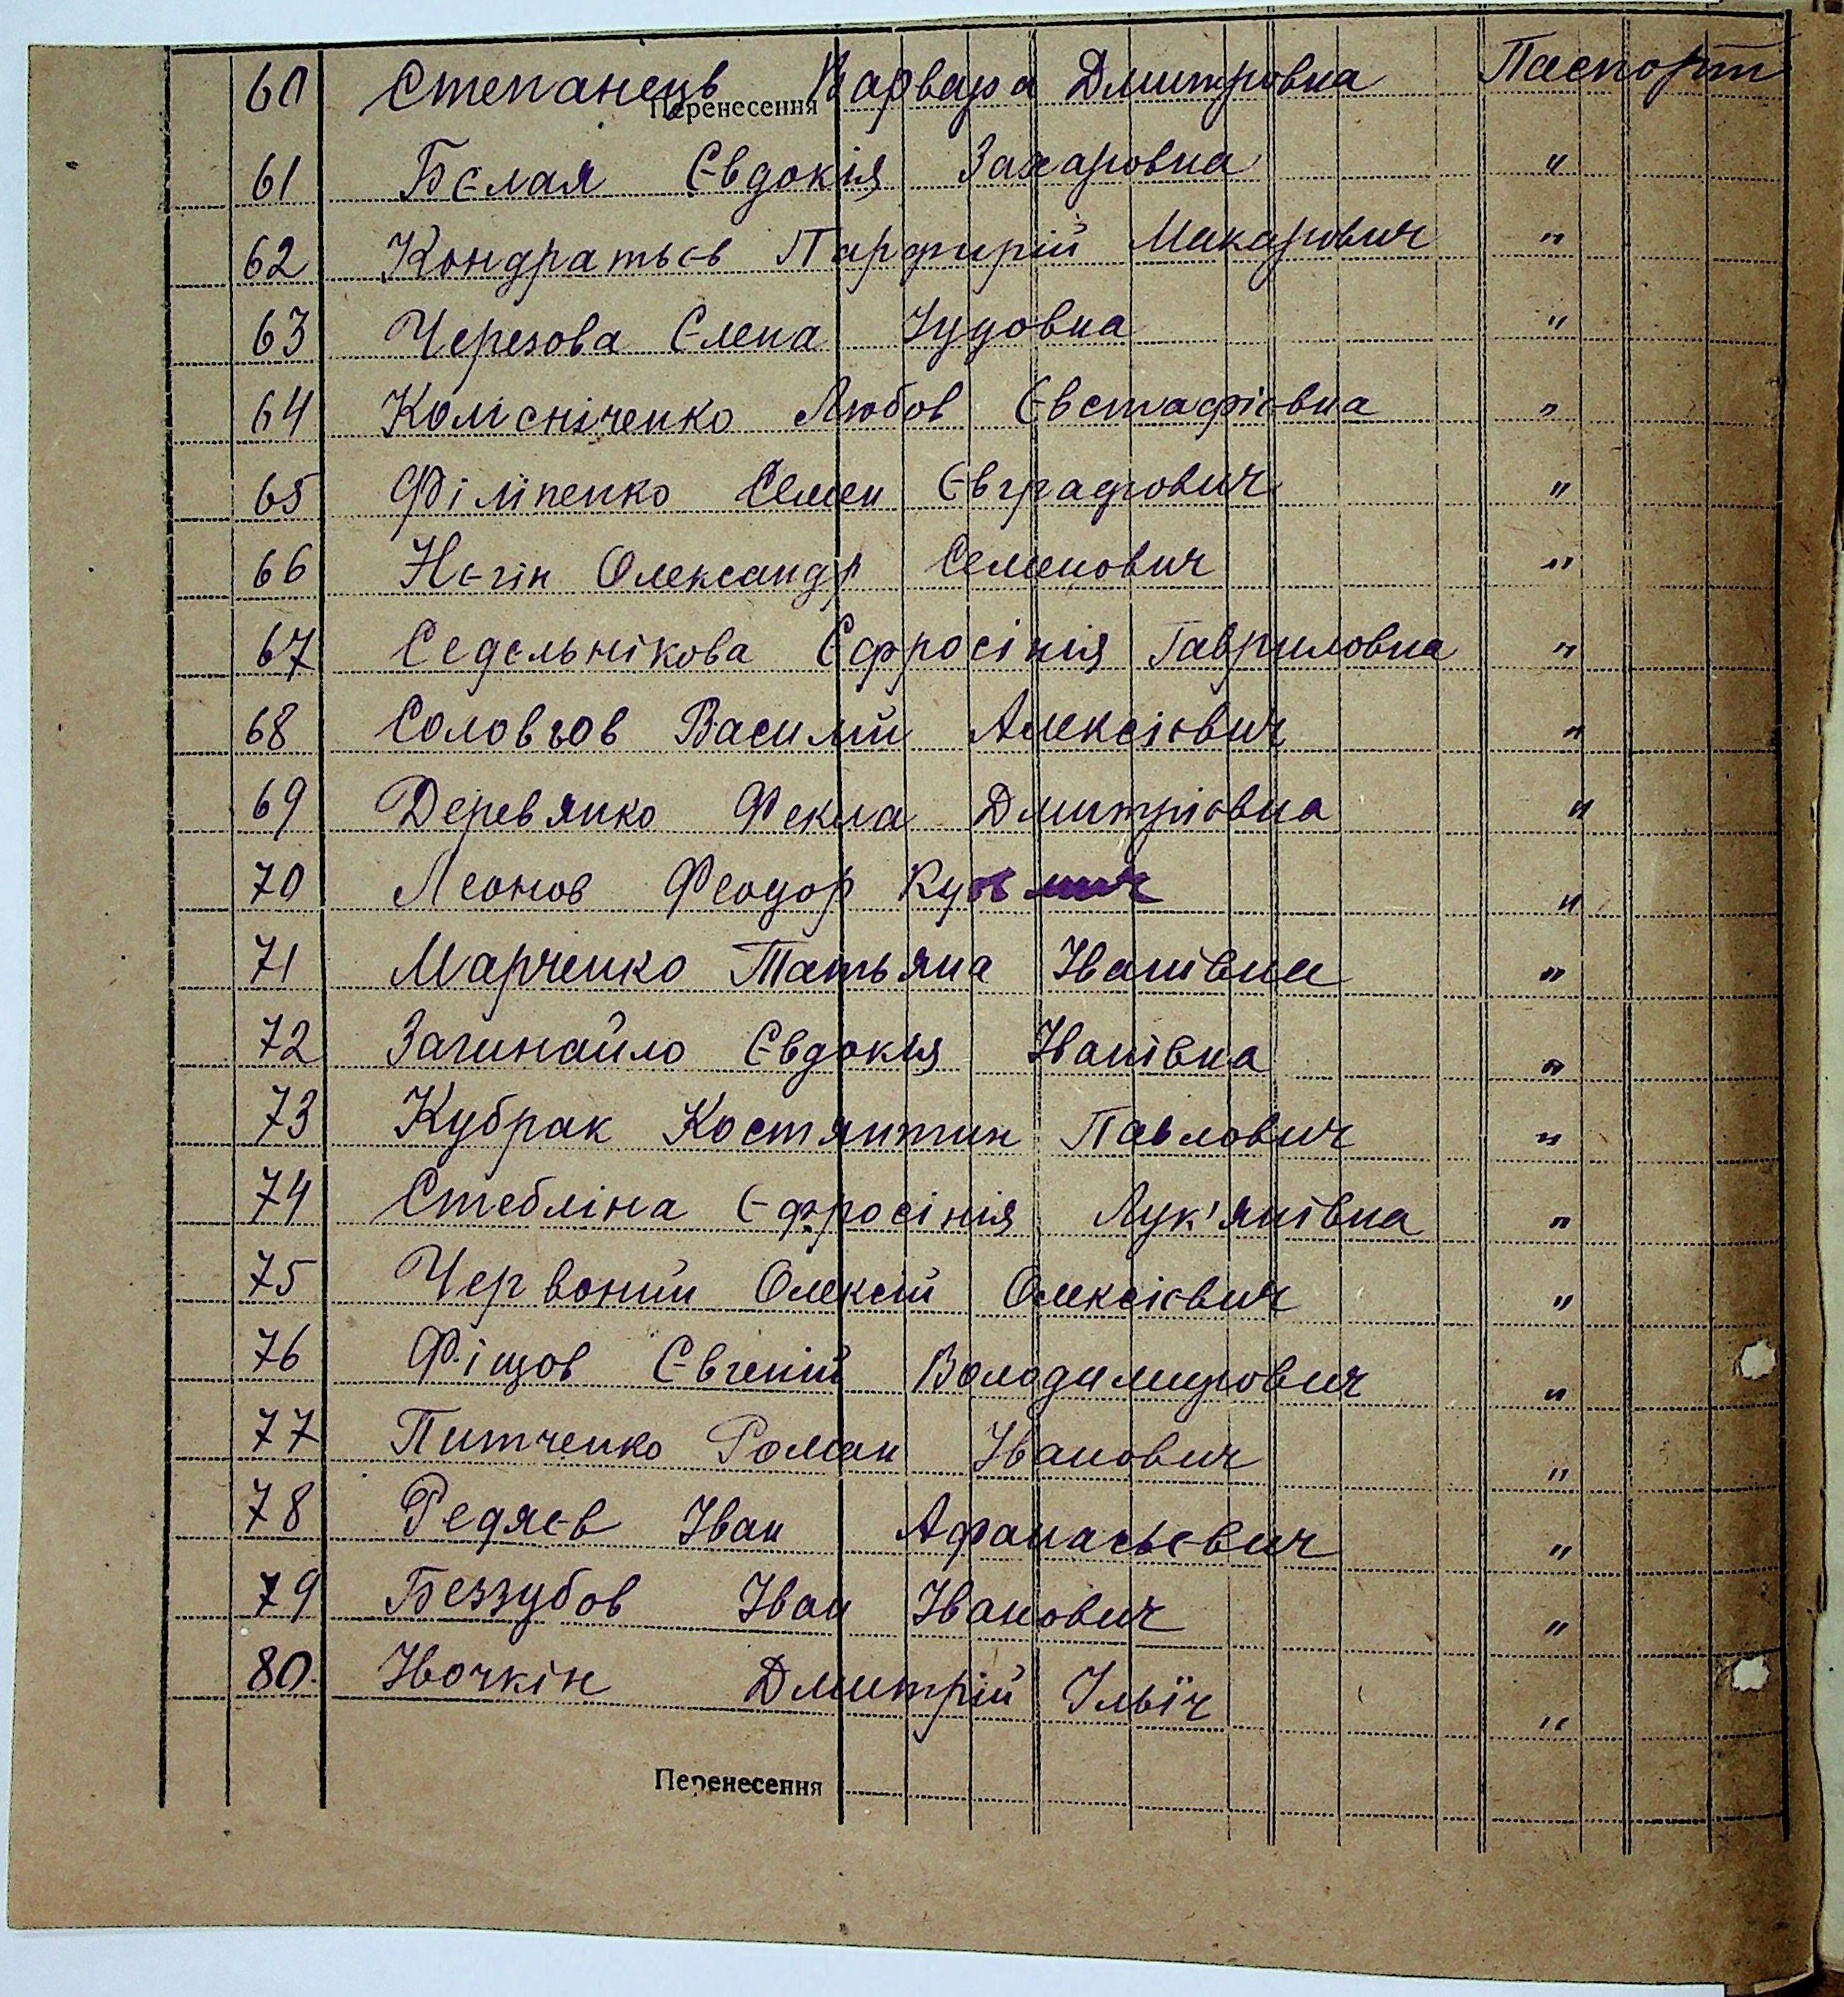 60 Степанець Варвара Дмитровна Паспорт
Перенесення
61 Бєлая Євдокія Захаровна "
62 Кондратьєв Парфирій Макарович "
63 Черезова Єлена Іудовна "
64 Колісніченко Любов Євстафієвна "
65 Філіпенко Семен Євграфович "
66 Нєгін Олександр Семенович "
67 Седєльнікова Єфросінія Гавриловна "
68 Соловьов Василій Алексієвич "
69 Дерев'янко Фекла Дмитрієвна "
70 Леонов Феодор Кузьмич "
71 Марченко Татьяна Іванівна "
72 Загинайло Євдокія Іванівна "
73 Кубрак Костянтин Павлович "
74 Стебліна Єфросінія Лук'янівна "
75 Червоний Олексій Олексієвич "
76 Фіщов Євгеній Володимирович "
77 Питченко Роман Іванович "
78 Редяєв Іван Афанасьєвич "
79 Беззубов Іван Іванович "
80. Івочкін Дмитрій Ільїч "
Перенесення